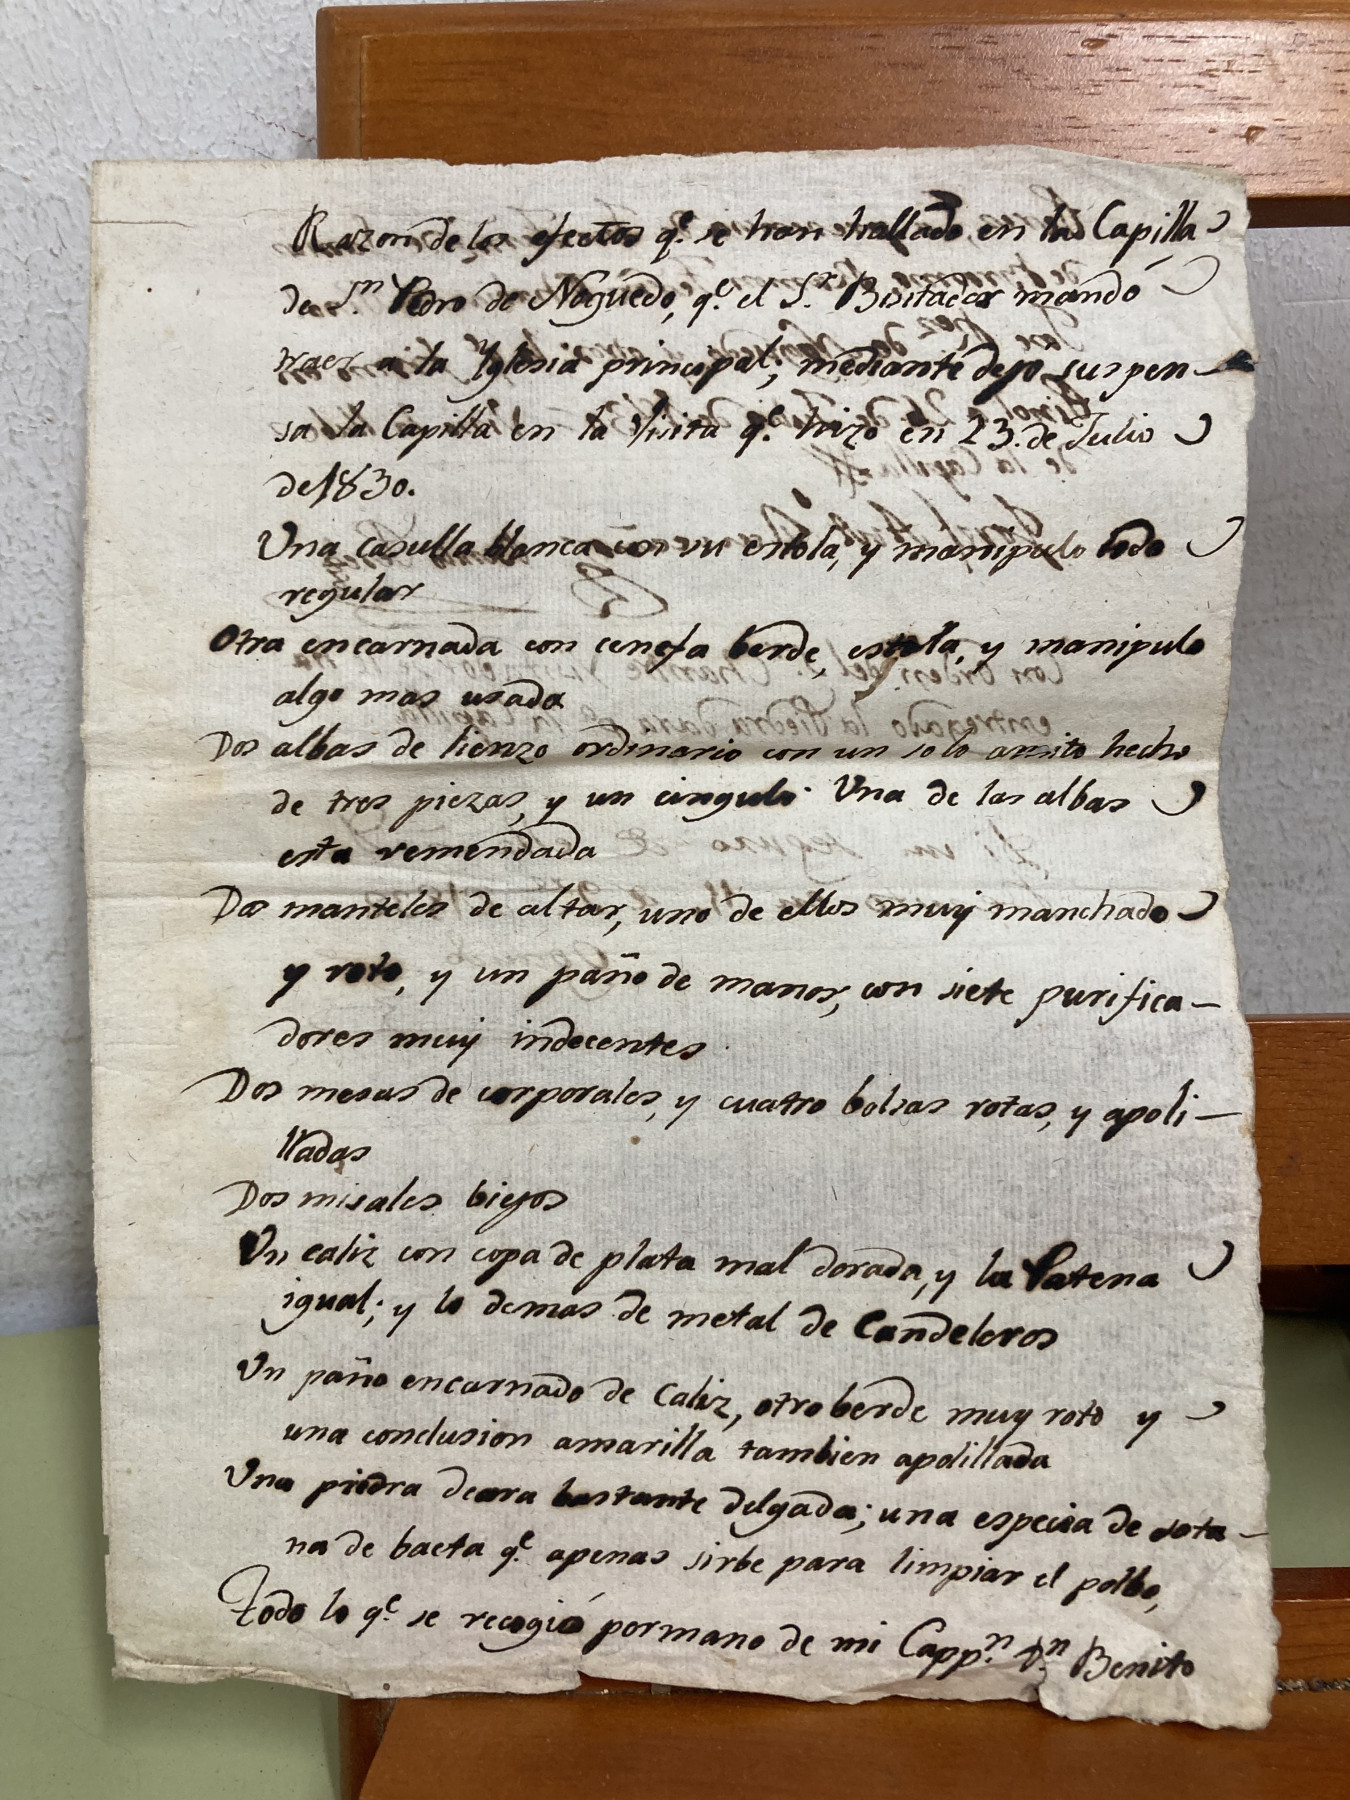 Razon de los efectos q.e se han hallado en la Capilla
de S.n Pedro de Noguedo, q.e el S.r Bisitador mandó
traer a la Yglesia principal; mediante dejo suspen-
sa la Capilla en la Visita q.e hizo en 23. de Julio
de 1830.
Una casulla blanca con su estola, y manipulo todo
regular
Otra encarnada con cenefa berde, estola, y manipulo
algo mas usada
Dos albas de lienzo ordinario con un solo amito hecho
de tres piezas, y un cingulo. Una de las albas
esta remendada
Dos manteles de altar, uno de ellos muy manchado
y roto, y un paño de manos, con siete purifica-
dores muy indecentes
Dos mesas de corporales, y cuatro bolsas rotas, y apoli-
lladas
Dos misales biejos
Un caliz con copa de plata mal dorada, y la Patena
igual; y lo demas de metal de Candeleros
Un paño encarnado de Caliz, otro berde muy roto y
una conclusion amarilla tambien apolillada
Una piedra de ara bastante delgada; una especia de sota-
na de baeta q.e apenas sirbe para limpiar el polbo,
Todo lo q.e se recogió por mano de mi Capp.n D.n Benito